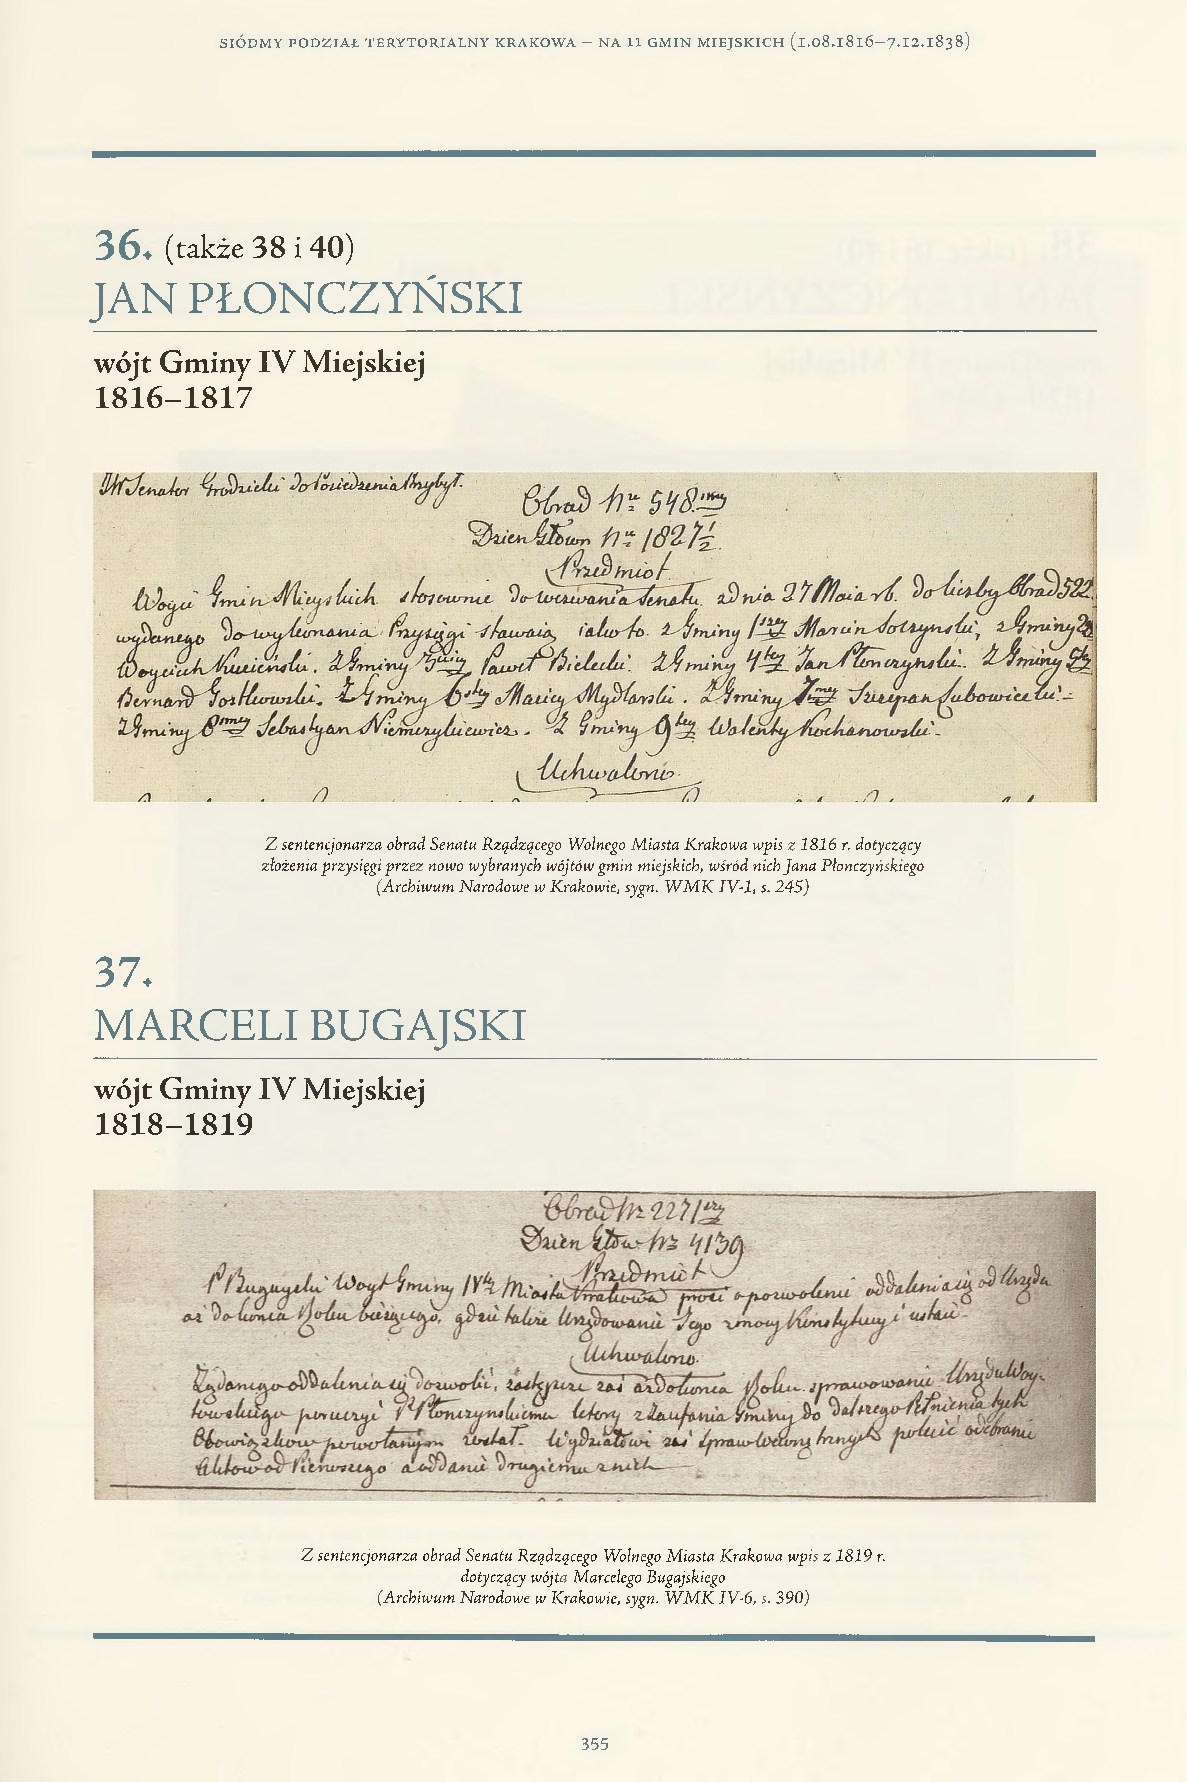 SIÓDMY PODZIAŁ TERYTORIALNY KRAKOWA – NA 11 GMIN MIEJSKICH (1.08.1816–7.12.1838)
36. (także 38 i 40)
JAN PŁONCZYŃSKI
wójt Gminy IV Miejskiej
1816–1817
JW Senator Grodzicki do Posiedzenia Przybył.
Obrad Nr 548.my
Dzien Głown Nr 1827 1/2
Przedmiot
Woyci Gmin Mieyskich stosownie do wezwania Senatu z dnia 27 Maia rb. do liczby Obrad 522
wydanego do wykonania Przysięgi stawaią iako to. z Gminy 1szey Marcin Soczynski, z Gminy 2
Woyciech Kucieński. Z Gminy 3ciey Paweł Bielecki. Z Gminy 4tey Jan Płonczynski. Z Gminy 5tey
Bernard Gostkowski. Z Gminy 6stey Maciey Mydlarski. Z Gminy 7mey Szczepan Lubowiecki.-
Z Gminy 8mey Sebastyan Niemczykiewicz. - Z Gminy 9tey Walenty Kochanowski.-
Uchwalono.
Z sentencjonarza obrad Senatu Rządzącego Wolnego Miasta Krakowa wpis z 1816 r. dotyczący
złożenia przysięgi przez nowo wybranych wójtów gmin miejskich, wśród nich Jana Płonczyńskiego
(Archiwum Narodowe w Krakowie, sygn. WMK IV-1, s. 245)
37.
MARCELI BUGAJSKI
wójt Gminy IV Miejskiej
1818–1819
Obrad Nr 2271szy
Dzien Głow Nr 4139
Przedmiot
P Bugayski Woyt Gminy IVtey Miasta Krakowa prosi o pozwolenie oddalenia się od Urzędu
aż do konca Roku bieżącego, gdzie także Urzędowanie Jego z mocy Konstytucyi ustaie.
Uchwalono.
Żądanego oddalenia się dozwolić, zastępcze zaś aż do konca Roku sprawowanie Urzędu Woy-
towskiego poruczyć P Płonczynskiemu ktory z Zaufania Gminy do dalszego Pełnienia tych
Obowiązkow powołanym został. Wydziałowi zaś Spraw Wewnętrznych polecić odebranie
Aktow od Pierwszego a oddanie drugiemu z nich
Z sentencjonarza obrad Senatu Rządzącego Wolnego Miasta Krakowa wpis z 1819 r.
dotyczący wójta Marcelego Bugajskiego
(Archiwum Narodowe w Krakowie, sygn. WMK IV-6, s. 390)
355